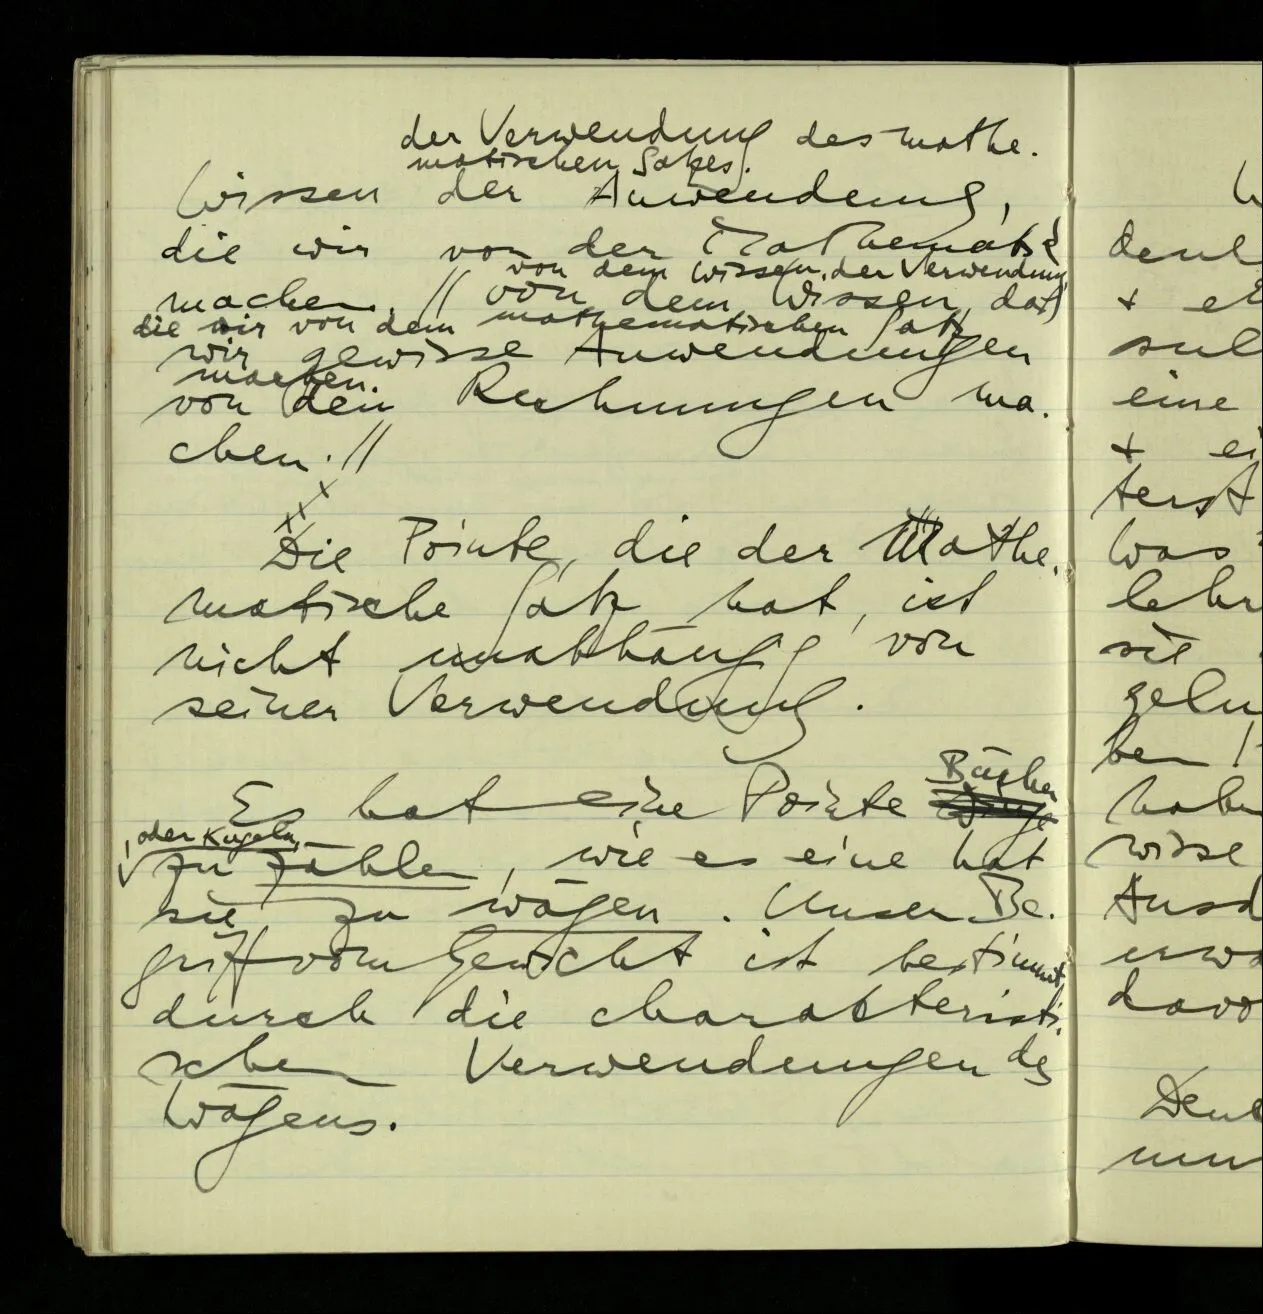 der Verwendung des mathe-
matischen Satzes.
Wissen der Anwendung,
die wir von der Mathematik
von dem Wissen, der Verwendung
machen. // von dem Wissen, daß
die wir von dem mathematischen Satz
wir gewisse Anwendungen
machen.
von den Rechnungen ma-
chen. //
Die Pointe, die der Mathe-
matische Satz hat, ist
nicht unabhängig von
seiner Verwendung.
Bücher
Es hat eine Pointe Dinge
, oder Kugeln,
zu zählen, wie es eine hat
sie zu wägen. Unser Be-
griff vom Gewicht ist bestimmt
durch die charakteristi-
schen Verwendungen des
Wägens.
denk
+
eine
+ ei
terst
Was
lehr
sie
gelu
ben
habe
wisse
Ausd
davo
Denk